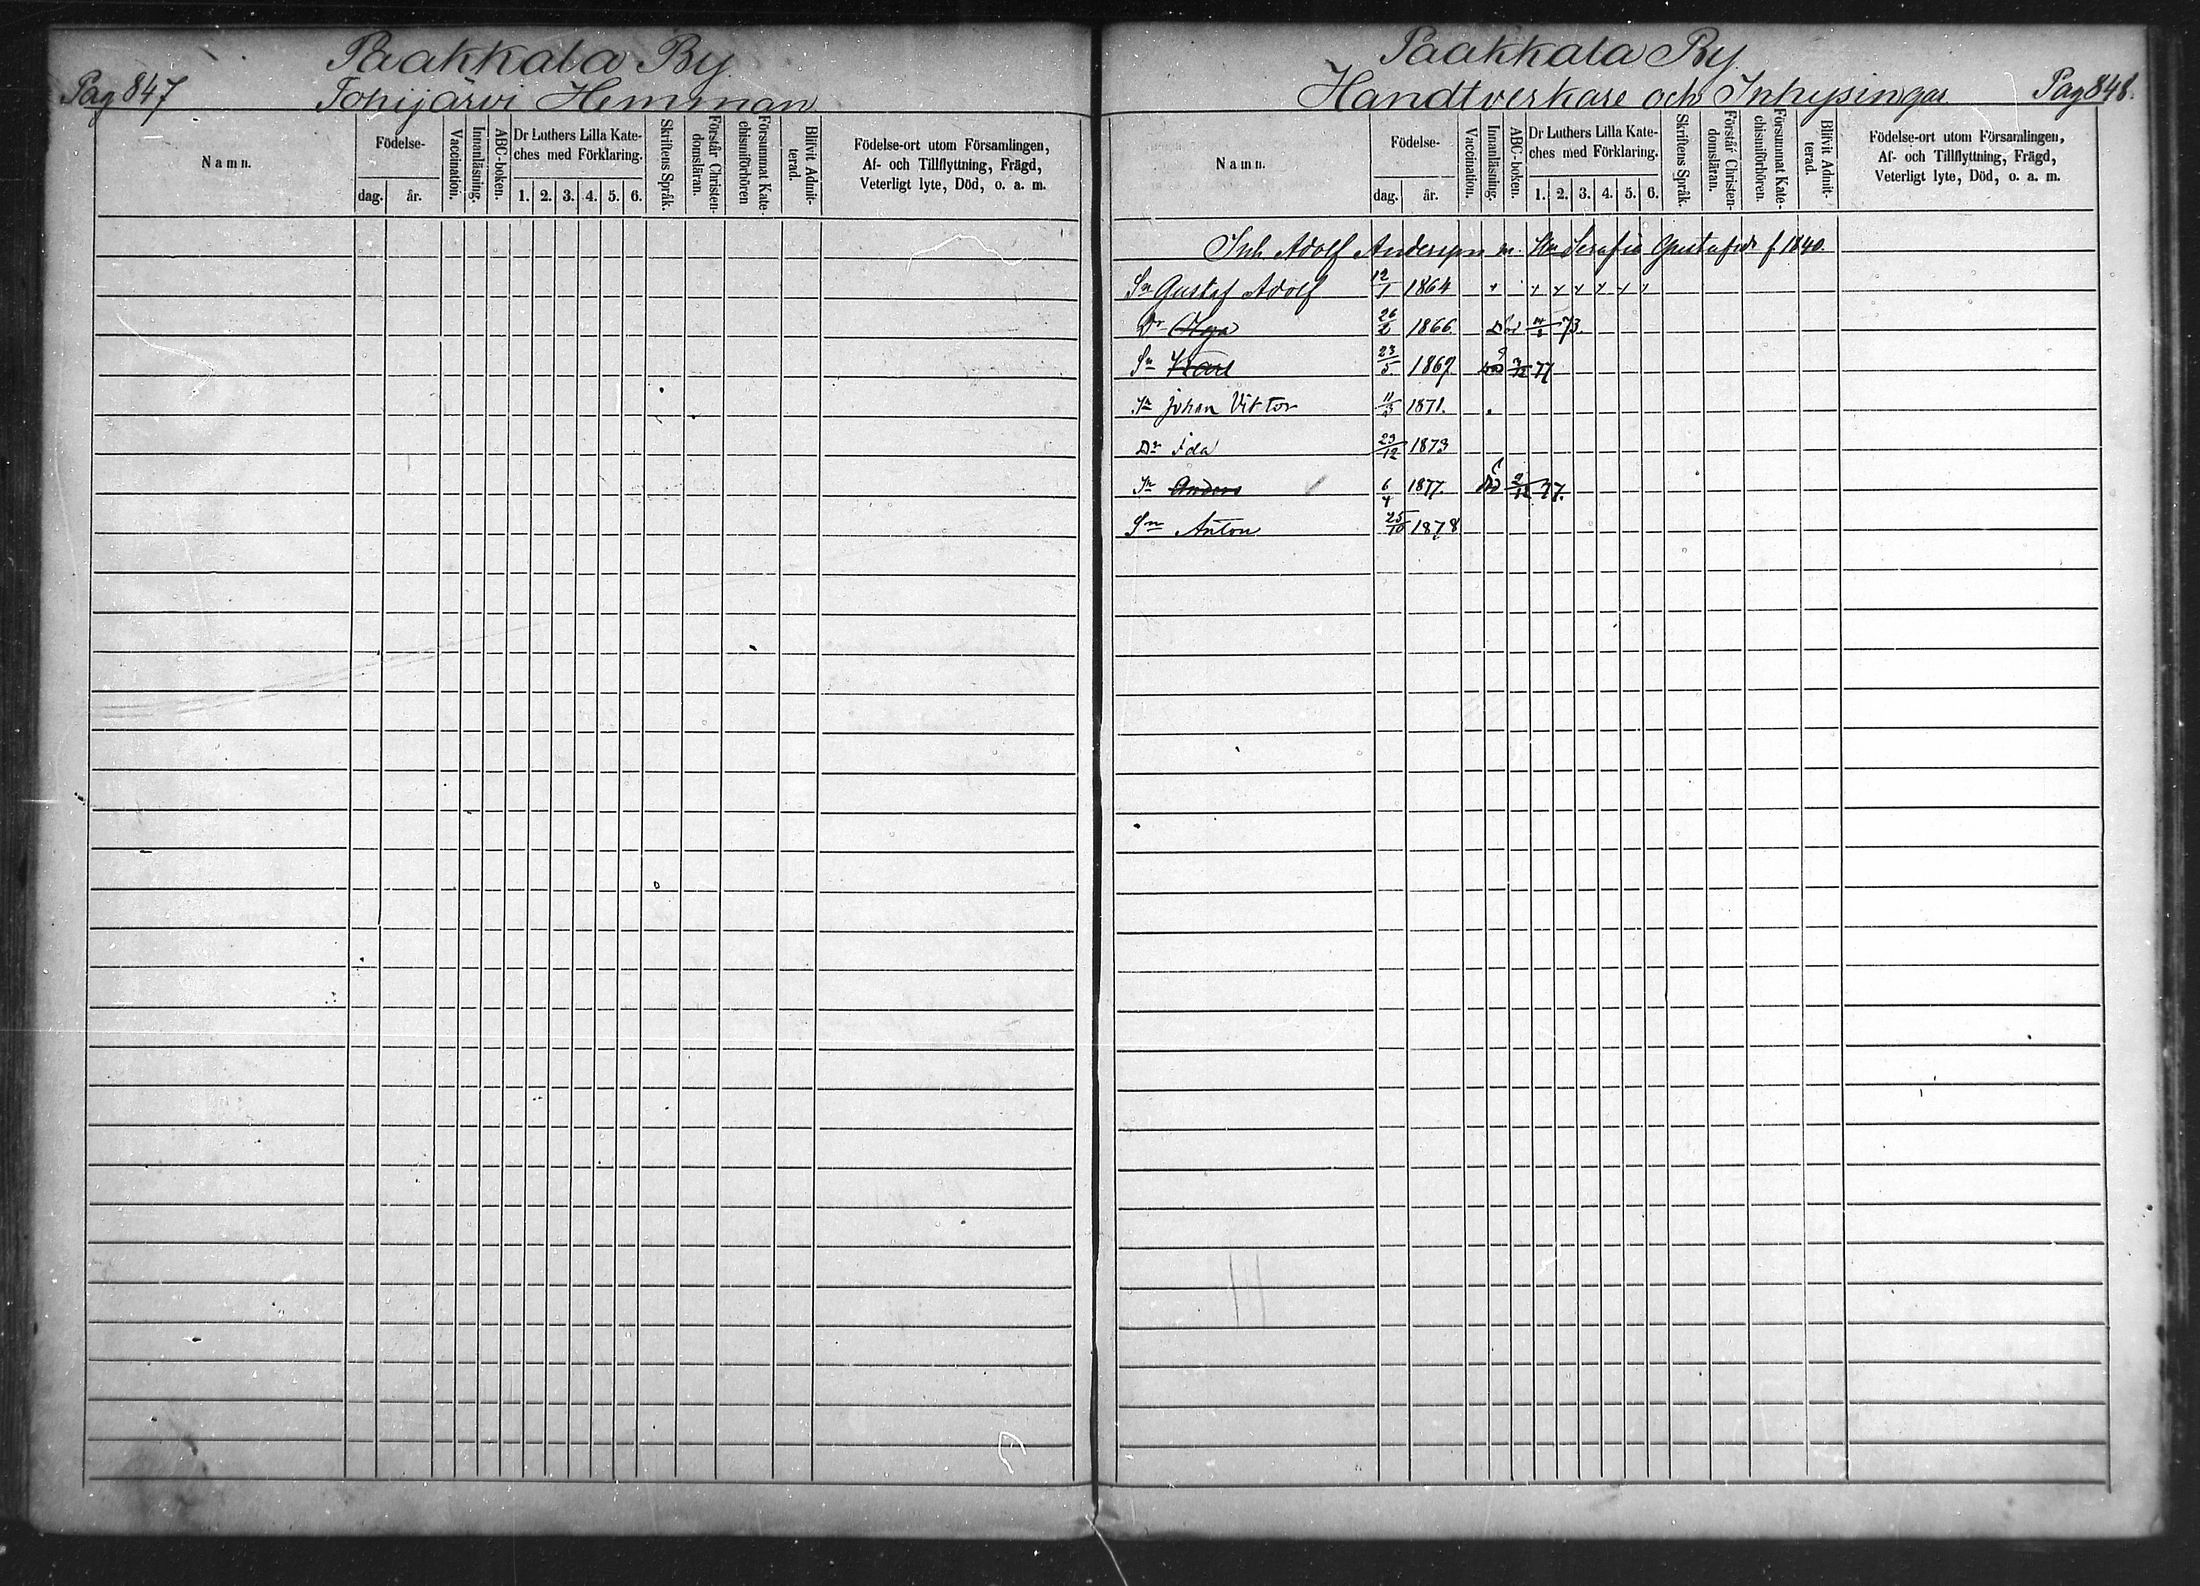 Paakkala By
Pag 847
Tohijärvi Hemman
Namn.
Födelse-
dag. år.
Vaccination.
Innanläsning.
ABC-boken.
Dr Luthers Lilla Kate-
ches med Förklaring.
1. 2. 3. 4. 5. 6.
Skriftens Språk.
Förstår Christen-
domsläran.
Försummat Kate-
chismiförhören
Blifvit Admit-
terad.
Födelse-ort utom Församlingen,
Af- och Tillflyttning, Frägd,
Veterligt lyte, Död, o. a. m.
Paakkala By
Handtverkare och Inhysingar
Pag 848.
Namn.
Födelse-
dag. år.
Vaccination.
Innanläsning.
ABC-boken.
Dr Luthers Lilla Kate-
ches med Förklaring.
1. 2. 3. 4. 5. 6.
Skriftens Språk.
Förstår Christen-
domsläran.
Försummat Kate-
chismiförhören.
Blifvit Admit-
terad.
Födelse-ort utom Församlingen,
Af- och Tillflyttning, Frägd,
Veterligt lyte, Död, o. a. m.
Inh Adolf Andersson Serafia Gustafsdr f. 1840.
Sn Gustaf Adolf 12/1 1864
Dr Olga 26/2 1866. 73.
Sn Karl 23/5 1869 77
Sn Johan Viktor 11/3 1871.
Dr Ida 29/12 1873
Sn Anders 6/4 1877. 77.
Sn Anton 25/10 1878